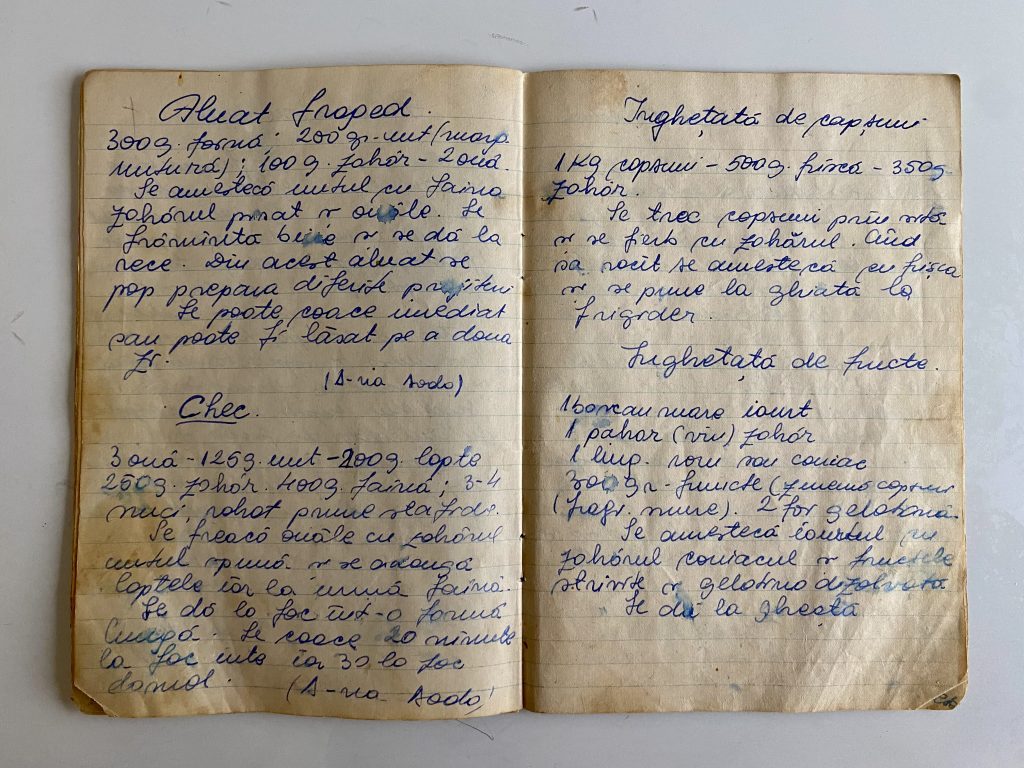 Aluat fraged.
300g. faină; 200 gr. unt (marg.
untură); 100 g. zahăr - 2 ouă.
Se amestecă untul cu faina
zahărul pisat și ouăle. Se
frămîntă bine și se dă la
rece. Din acest aluat se
pop prepara diferite prăjituri
Se poate coace imediat
sau poate fi lăsat pe a doua
zi.
(D-na Dodo)
Chec.
3 ouă - 125g. unt - 200g. lapte
250g. zahăr 400g. faină; 3-4
nuci, rahat prune stafide.
Se freacă ouăle cu zahărul
untul spumă și se adaugă
laptele iar la urmă faină.
Se dă la foc într-o formă
lungă. Se coace 20 minute
la foc iute iar 30 la foc
domol. (D-na Dodo)
Inghețată de capșuni
1 Kg capsuni - 500g. frișcă - 350g.
zahăr.
Se trec capsuni prin sită
și se fierb cu zahărul. Cînd
sa racit se amestecă cu frișca
și se pune la ghiață la
frigider.
Inghețată de fructe.
1 borcan mare iaurt
1 pahar (vin) zahăr
1 ling. rom sau coniac
300 gr. fructe (zmeură capsuni
(fragi. mure). 2 foi gelatină
Se amestecă iaurtul cu
zahărul coniacul și fructele
și gelatina dizolvată
Se dă la gheață